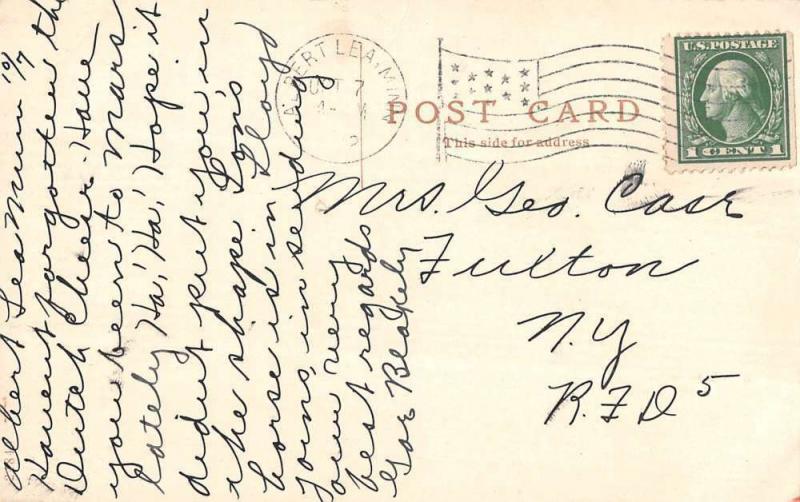 Albert Lea Minn 10/7
Havent forgotten the
Dutch Cheese. Have
you been to mars
lately Ha! Ha! Hope it
didnt put you in
the shape Lon's
horse is in. Lloyd
joins in sending
our very
best regards
Geo Blakely
ALBERT LEA, MINN.
OCT 7
POST CARD
This side for address
U.S. POSTAGE
1 CENT 1
Mrs. Geo. Case
Fulton
N.Y
R.F.D 5